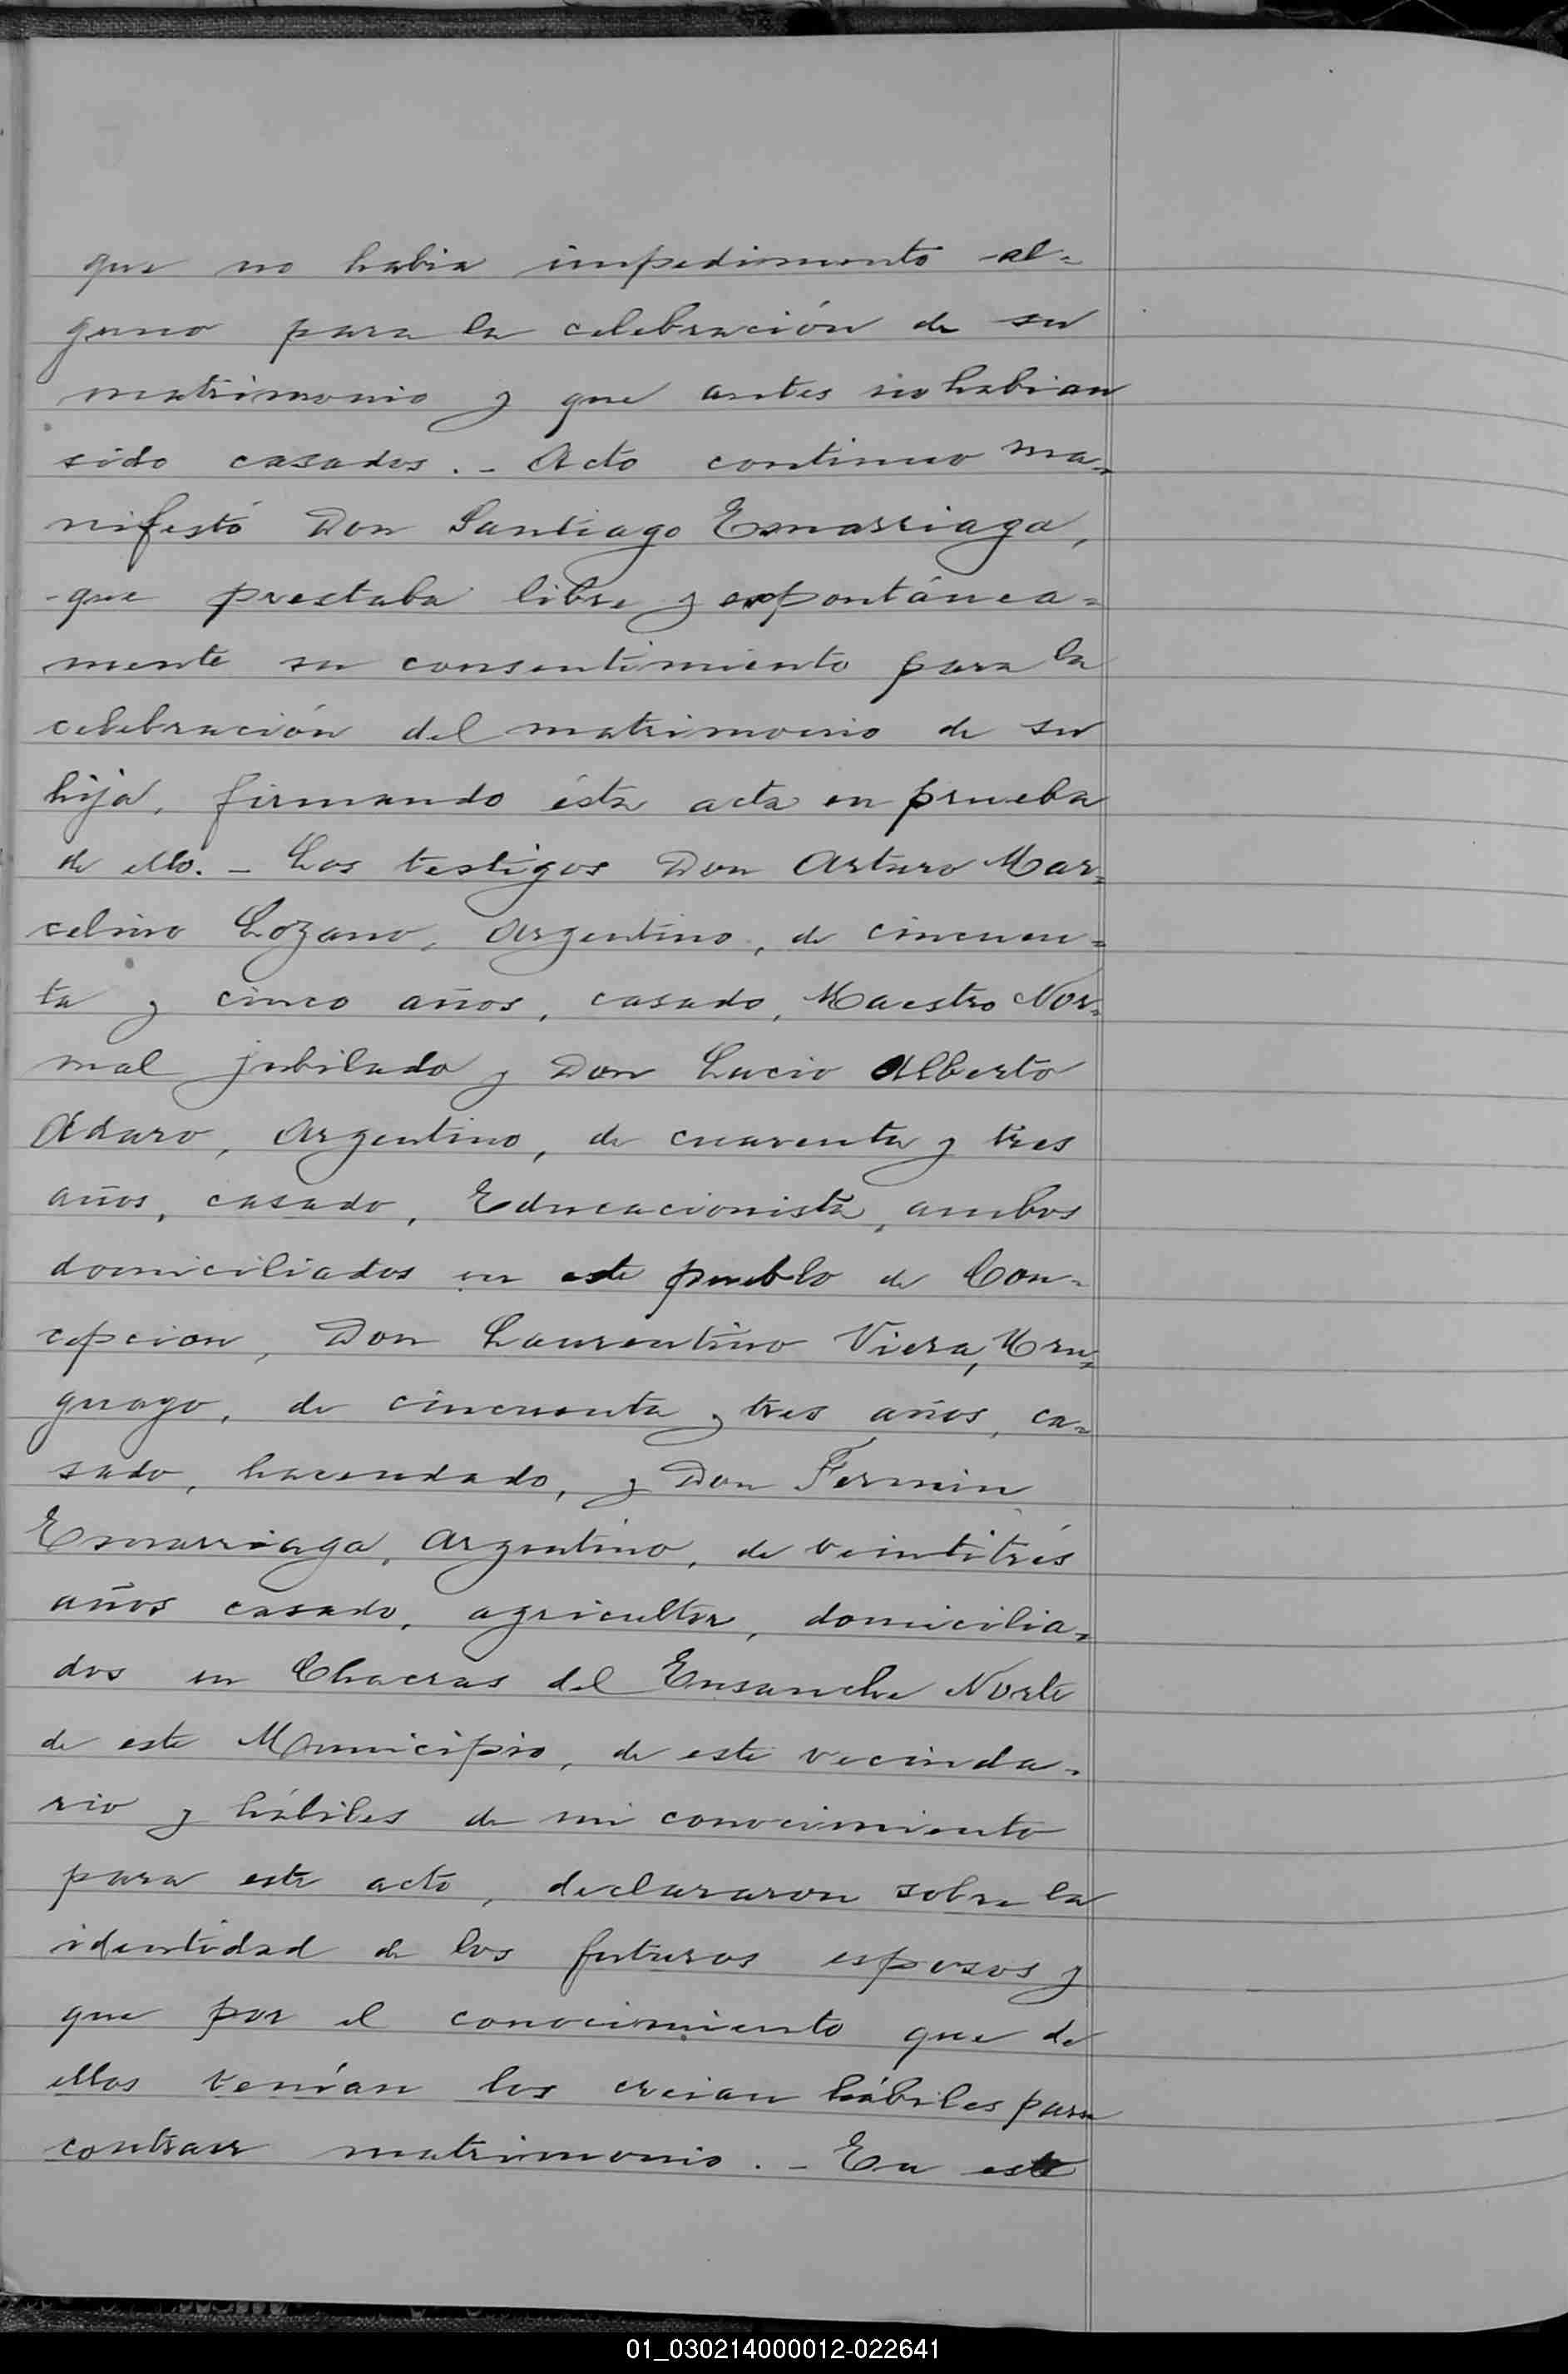 que no habia impedimento al=
guno para la celebración de su
matrimonio y que antes no habian
sido casados. - Acto continuo ma=
nifestó Don Santiago Esmarriaga,
que prestaba libre y espontánea=
mente su consentimiento para la
celebración del matrimonio de su
hija, firmando ésta acta en prueba
de ello. - Los testigos Don Arturo Mar=
celino Lozano, Argentino, de cincuen=
ta y cinco años, casado, Maestro Nor=
mal jubilado y Don Lucio Alberto
Adaro, Argentino, de cuarenta y tres
años, casado, Educacionista, ambos
domiciliados en este pueblo de Con=
cepcion, Don Laurentino Viera, Uru=
guayo, de cincuenta y tres años, ca=
sado, hacendado, y Don Fermin
Esmarriaga, Argentino, de veintitrés
años casado, agricultor, domicilia=
dos en Chacras del Ensanche Norte
de este Municipio, de este vecinda=
rio y hábiles de mi conocimiento
para este acto, declararon sobre la
identidad de los futuros esposos y
que por el conocimiento que de
ellos tenían los creian hábiles para
contraer matrimonio. - En este
01_030214000012-022641